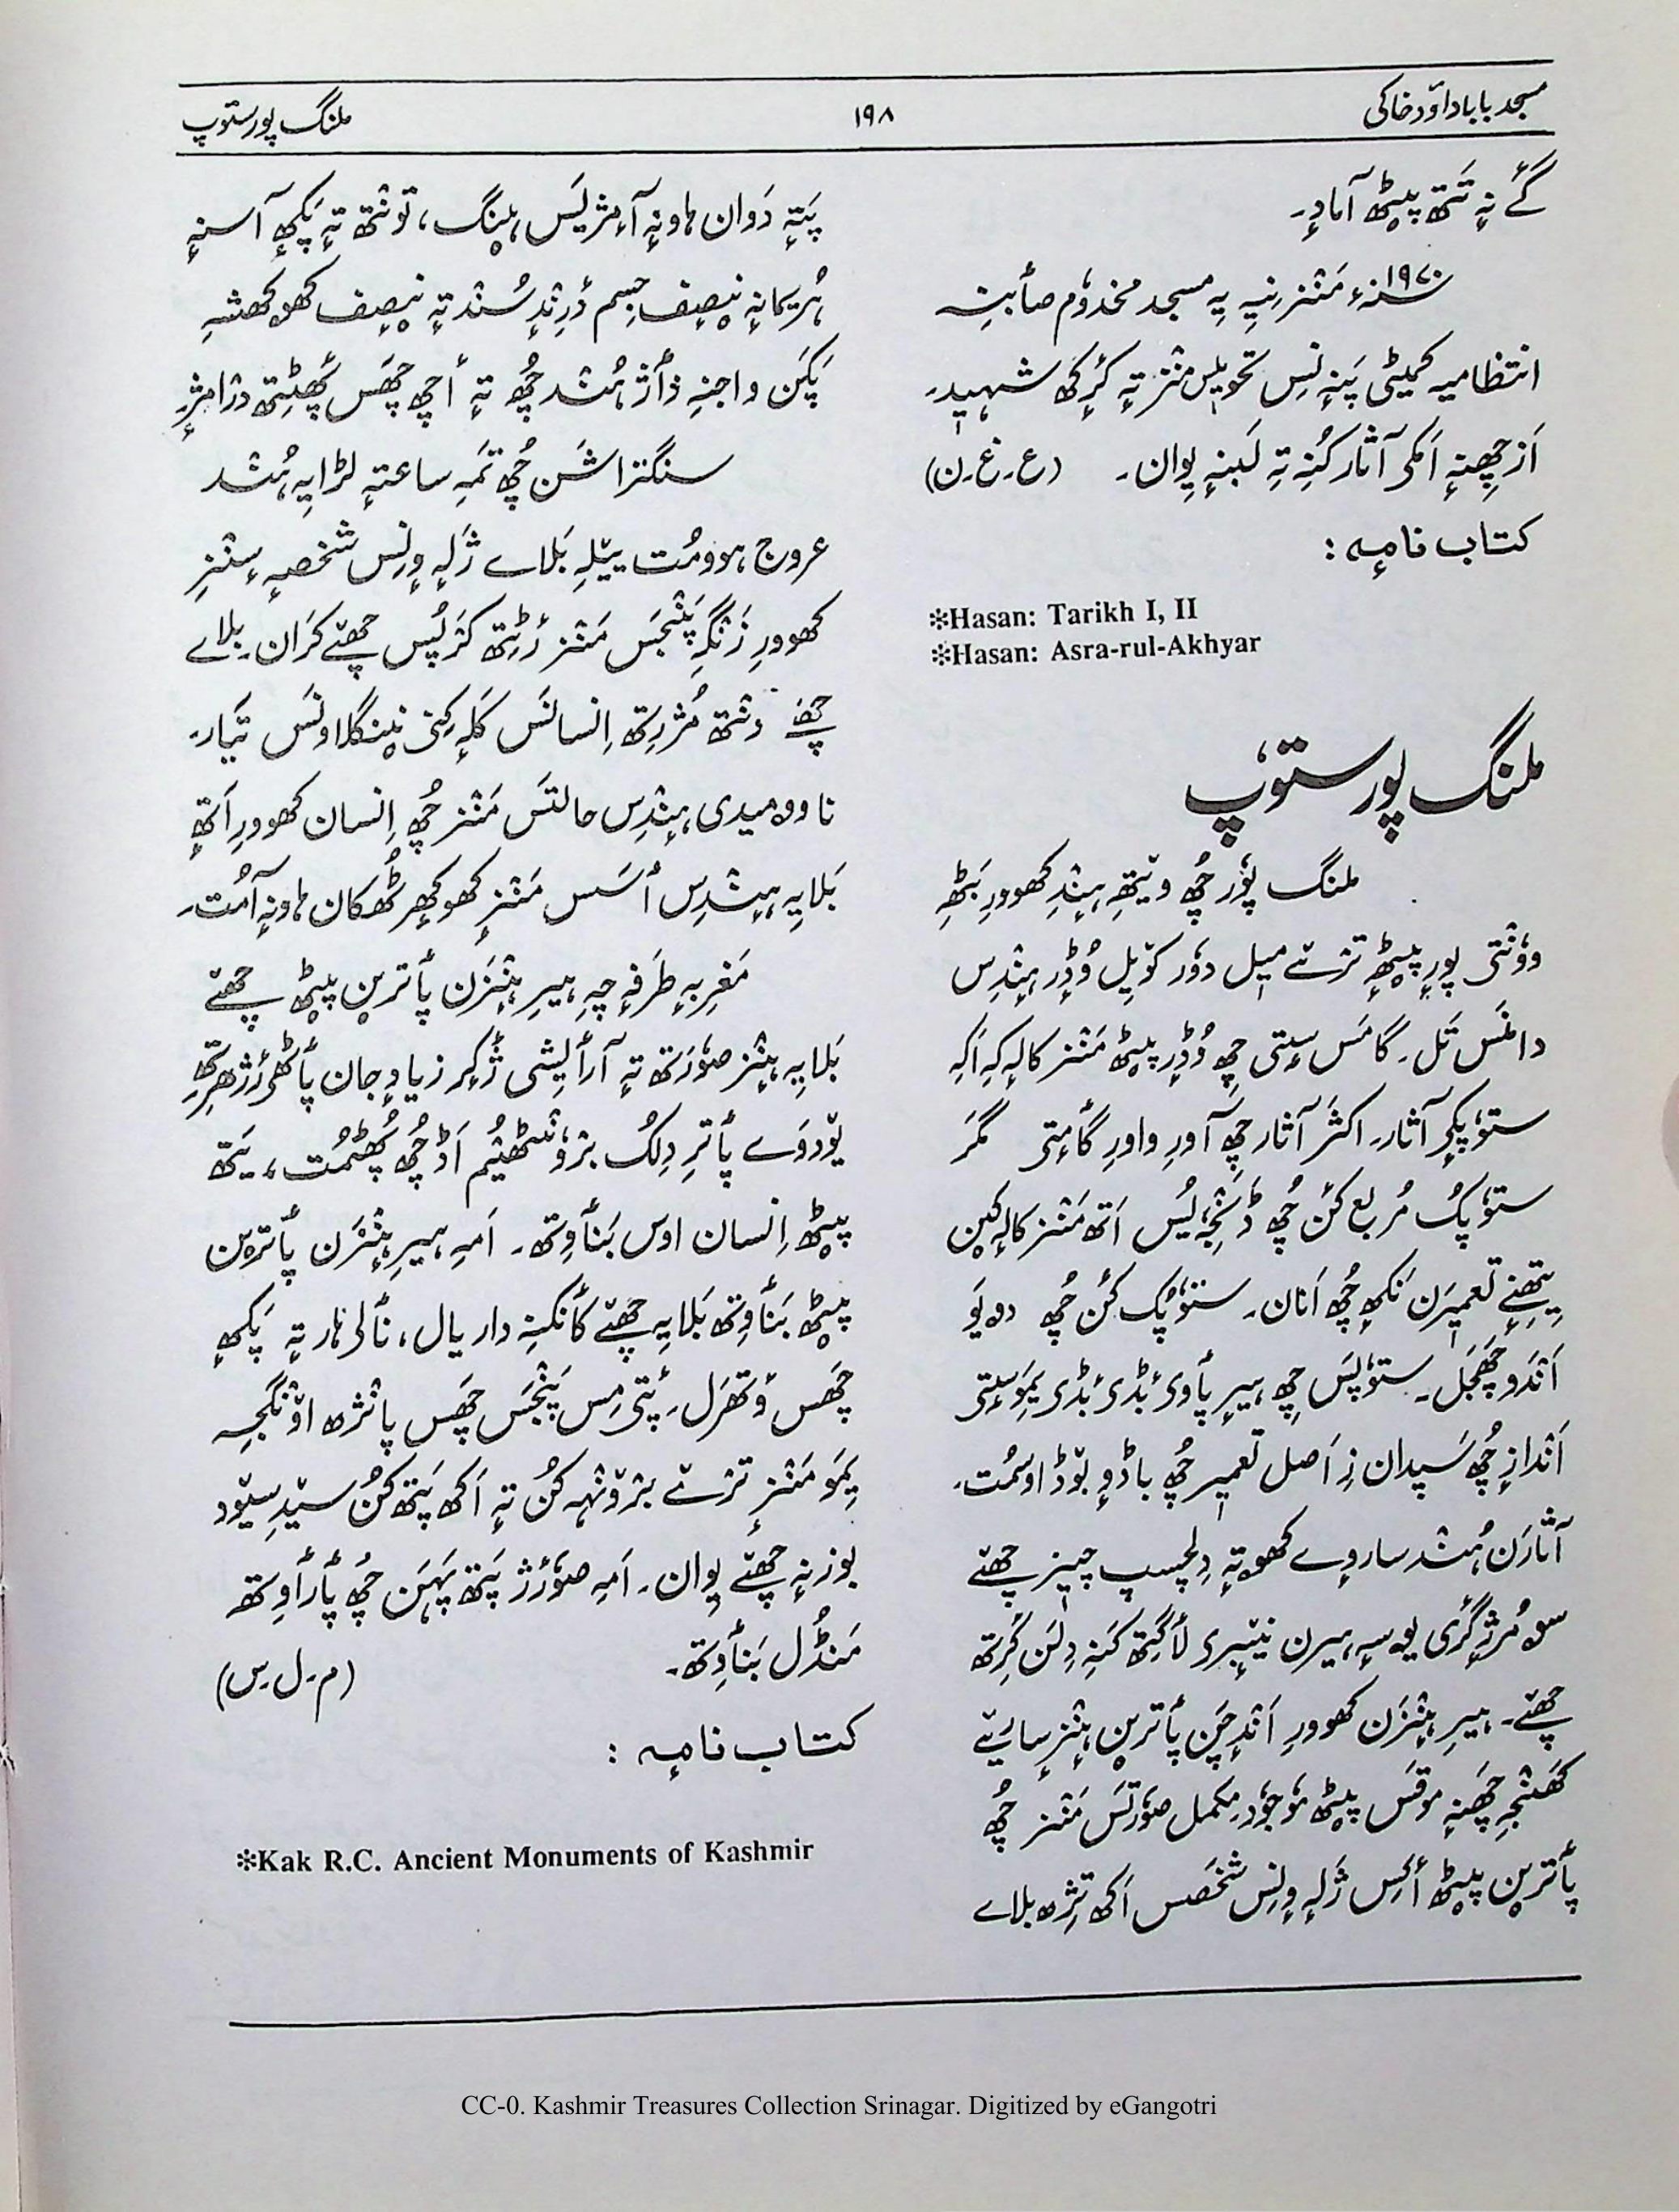 مسجد بابا داوٗد خاکی
۱۹۸
ملنگ پور ستوٗپ
گے نہٕ تَتھ پؠٹھ آبادٕ۔
۱۹۷۰ سنہٕ مَنٛز نِیہِ یہِ مسجد مخدوٗم صأبنہِ
انتظامیہ کمیٹی پَننِہ تحویلس منٛز تہٕ کٔرٕکھ شہید۔
اَز چھِنہٕ اَمکی آثار کُنہِ تہِ لَبنہٕ یِوان۔ (ع۔غ۔ن)
کتاب نامہٕ :
*Hasan: Tarikh I, II
*Hasan: Asra-rul-Akhyar
ملنگ پور ستوٗپ
ملنگ پوٗر چھُ ویتھِ ہِنٛدِ کھوورِ بَٹھِ
ووٗنتی پورٕ پؠٹھٕ ترٛے میل دوٗر کوٚیِل وُڈٕر ہِنٛدِس
دامَنس تَل۔ گامَس سٟتی چھِ وُڈٕر پؠٹھ مَنٛز کالہٕ کہِ اَکہِ
ستوٗپٕکی آثار۔ اکثَر آثار چھِ آورِ واورِ گأمٕتی مگر
ستوٗپُک مُربع کَن چھُ ڈَنٛجہِ یُس اَتھ مَنٛز کالٕکین
یِتھِنٕے تعمیٖرَن نَکھٕ چھُ اَنان۔ ستوٗپُک کَن چھُ دۄیَو
اَنٛدَو چھَجَل۔ ستوٗپَس چھِ ہیرِ پأوی بٔڈی بٔڈی یِمَو سٟتی
اَنٛدازٕ چھُ سَپدان زِ اَصل تعمیر چھُ باڈٕو بوٚڈ اوسمُت۔
آثارَن ہُنٛد سارِوٕے کھۄتہٕ دِلچسپ چیز چھےٚ
سۄ مُرژگری یۄسہٕ ہیرن نیٚبرِی لأگِتھ کَنہِ دِلَن کٔرِتھ
چھےٚ۔ ہیرِ ہِنٛزَن کھوورِ اَنٛدٕچَن پأترٮ۪ن ہِنٛز سارِے
کَھنٛجہٕ چھَنہٕ موقَس پؠٹھ موٗجوٗد۔ مکمل صوٗرتَس مَنٛز چھُ
پأترٮ۪ن پؠٹھ أکِس ژلہٕ وٕنِس شخَصس اَکھ تِژھ بلاے
پَتہٕ دَوان ہاونہٕ آمٕژ یَس ہینٛگ، توٚنٛتھ تہٕ پَکھٕ آسنہٕ
نِصِف جسم دٔرنٛدٕ سُنٛد تہٕ نِصِف کھوکھشہِ
پَکَن واجنہِ ذأژ ہُنٛد چھُ تہٕ أچھ چھَس پھَٹِتھ دراَمٕژ
سنگتراشَن چھُ تمَہِ ساعتہٕ لڑایہِ ہُنٛد
عروج ہوومُت ییٚلہِ بَلاے ژلہٕ وٕنِس شخصہٕ سٕنٛز
کھوورِ زَنٛگہِ پَنٛجَس مَنٛز رٔٹِتھ چھےٚ کَران۔ بلاے
چھےٚ دٔنٛتھ مُژرِتھ اِنسانَس کَلہٕ کِنی نِینٛگلاونَس تیار۔
ناوۄمیدی ہِنٛدِس حالتَس مَنٛز چھُ اِنسان کھوورِ اَتھٕ
بَلایہِ ہِنٛدِس أسَس مَنٛزٕ کھوکھٕر ٹُھکان ہاونہٕ آمُت۔
مَغرِبہٕ طَرفٕچہِ ہیرِ ہِنٛزَن پأترٮ۪ن پؠٹھ چھےٚ
بَلایہِ ہِنٛز صوٗرَتھ تہٕ آرأیِشی ژٔکر زیادٕ جان پأٹھی رٔژھرِتھ
یوٚدوَے پأترِ دِلُک برٛوٗنٛٹھیُم اَڈ چھُ پھُٹمُت، یَتھ
پؠٹھ اِنسان اوس بَنأوِتھ۔ اَمہِ ہیرِ ہِنٛزَن پأترٮ۪ن
پؠٹھ بَنأوِتھ بَلایہِ چھےٚ کانٛکنہِ دار یال، نألی ہار تہٕ پَکھٕ
چھَس وَتھرَل۔ پٔتی مِس پَنٛجَس چھَس پانٛژھ اوٚنٛگجہِ
یِمَو مَنٛزٕ ترٛے برٛونٛہہ کُن تہٕ اَکھ پَتھ کُن سیٚدِ سیوٚد
بوزنہٕ چھےٚ یِوان۔ اَمہِ صوٗرٔژ پَتھ پَہَن چھُ پأرأوِتھ
مَنڈُل بَنأوِتھ۔ (م۔ل۔س)
کتاب نامہٕ :
*Kak R.C. Ancient Monuments of Kashmir
CC-0. Kashmir Treasures Collection Srinagar. Digitized by eGangotri